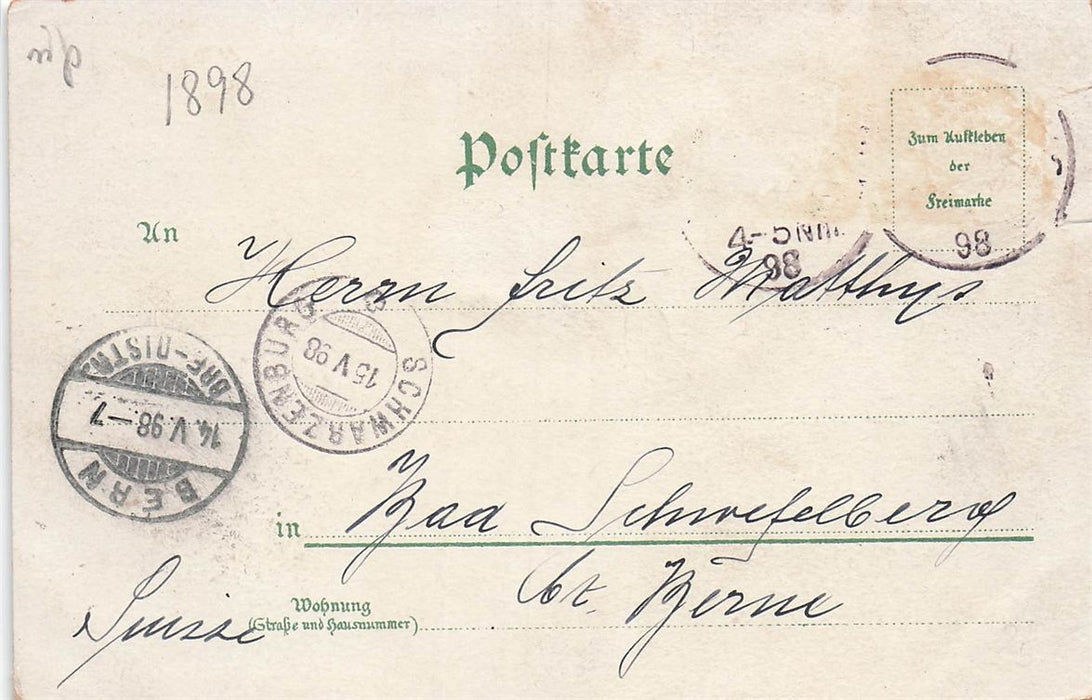 1898
Postkarte
Zum Aufkleben
der
Freimarke
4-5 Nm.
98
98
An
Herrn Fritz Matthys
SCHWARZENBURG
15 V 98
BERN
BRF-DISTR.
14. V. 98 – 7
in Bad Schwefelberg
Ct. Berne
Suisse
Wohnung
(Straße und Hausnummer)